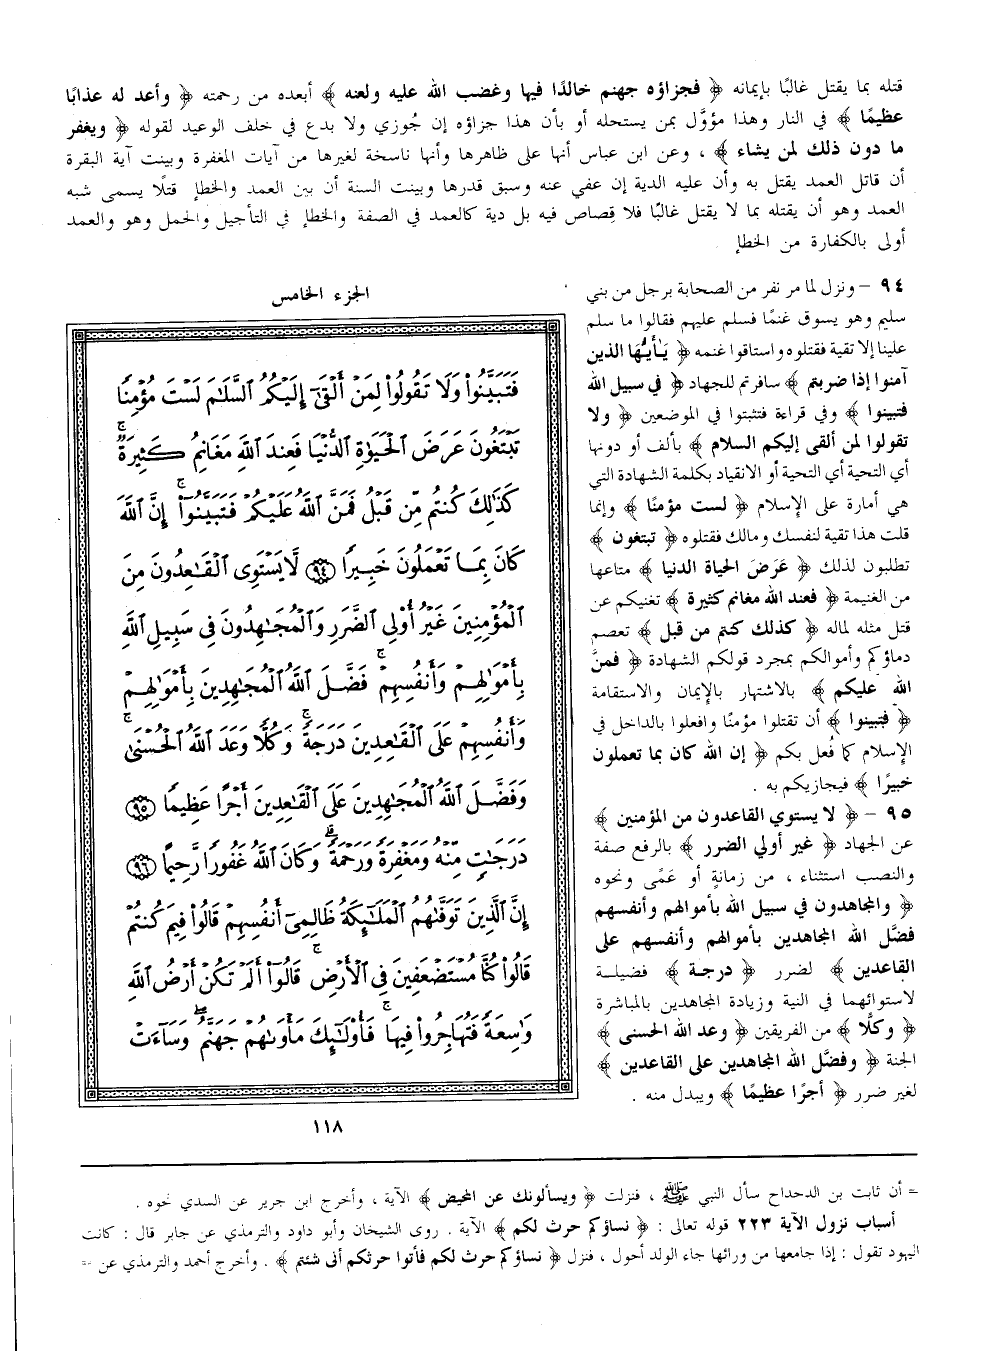 قتله بما يقتل غالبًا بإيمانه ﴿ فجزاؤه جهنم خالدًا فيها وغضب الله عليه ولعنه ﴾ أبعده من رحمته ﴿ وأعد له عذابًا
عظيمًا ﴾ في النار وهذا مؤوَّل بمن يستحله أو بأن هذا جزاؤه إن جُوزي ولا بدع في خلف الوعيد لقوله ﴿ ويغفر
ما دون ذلك لمن يشاء ﴾ ، وعن ابن عباس أنها على ظاهرها وأنها ناسخة لغيرها من آيات المغفرة وبينت آية البقرة
أن قاتل العمد يقتل به وأن عليه الدية إن عفي عنه وسبق قدرها وبينت السنة أن بين العمد والخطإ قتلًا يسمى شبه
العمد وهو أن يقتله بما لا يقتل غالبًا فلا قِصاص فيه بل دية كالعمد في الصفة والخطإ في التأجيل والحمل وهو والعمد
أولى بالكفارة من الخطإ
٩٤ – ونزل لما مر نفر من الصحابة برجل من بني
سليم وهو يسوق غنمًا فسلم عليهم فقالوا ما سلم
علينا إلا تقية فقتلوه واستاقوا غنمه ﴿ يَـٰأيُّها الذين
آمنوا إذا ضربتم ﴾ سافرتم للجهاد ﴿ في سبيل الله
فتبينوا ﴾ وفي قراءة فتثبتوا في الموضعين ﴿ ولا
تقولوا لمن ألقى إليكم السلام ﴾ بألف أو دونها
أي التحية أي التحية أو الانقياد بكلمة الشهادة التي
هي أمارة على الإسلام ﴿ لست مؤمنًا ﴾ وإنما
قلت هذا تقية لنفسك ومالك فقتلوه ﴿ تبتغون ﴾
تطلبون لذلك ﴿ عَرَضَ الحياة الدنيا ﴾ متاعها
من الغنيمة ﴿ فعند الله مغانم كثيرة ﴾ تغنيكم عن
قتل مثله لماله ﴿ كذلك كنتم من قبل ﴾ تعصم
دماؤكم وأموالكم بمجرد قولكم الشهادة ﴿ فمنَّ
الله عليكم ﴾ بالاشتهار بالإيمان والاستقامة
﴿ فتبينوا ﴾ أن تقتلوا مؤمنًا وافعلوا بالداخل في
الإسلام كما فُعل بكم ﴿ إن الله كان بما تعملون
خبيرًا ﴾ فيجازيكم به .
٩٥ – ﴿ لا يستوي القاعدون من المؤمنين ﴾
عن الجهاد ﴿ غير أولي الضرر ﴾ بالرفع صفة
والنصب استثناء ، من زمانةٍ أو عَمًى ونحوه
﴿ والمجاهدون في سبيل الله بأموالهم وأنفسهم
فضَّل الله المجاهدين بأموالهم وأنفسهم على
القاعدين ﴾ لضرر ﴿ درجة ﴾ فضيلـة
لاستوائهما في النية وزيادة المجاهدين بالمباشرة
﴿ وكلًّا ﴾ من الفريقين ﴿ وعد الله الحسنى ﴾
الجنة ﴿ وفضَّل الله المجاهدين على القاعدين ﴾
لغير ضرر ﴿ أجرًا عظيمًا ﴾ ويبدل منه .
الجزء الخامس
فَتَبَيَّنُوا۟ وَلَا تَقُولُوا۟ لِمَنْ أَلْقَىٰٓ إِلَيْكُمُ ٱلسَّلَـٰمَ لَسْتَ مُؤْمِنًا
تَبْتَغُونَ عَرَضَ ٱلْحَيَوٰةِ ٱلدُّنْيَا فَعِندَ ٱللَّهِ مَغَانِمُ كَثِيرَةٌ ۚ
كَذَٰلِكَ كُنتُم مِّن قَبْلُ فَمَنَّ ٱللَّهُ عَلَيْكُمْ فَتَبَيَّنُوٓا۟ ۚ إِنَّ ٱللَّهَ
كَانَ بِمَا تَعْمَلُونَ خَبِيرًا ﴿٩٤﴾ لَّا يَسْتَوِى ٱلْقَـٰعِدُونَ مِنَ
ٱلْمُؤْمِنِينَ غَيْرُ أُو۟لِى ٱلضَّرَرِ وَٱلْمُجَـٰهِدُونَ فِى سَبِيلِ ٱللَّهِ
بِأَمْوَٰلِهِمْ وَأَنفُسِهِمْ ۚ فَضَّلَ ٱللَّهُ ٱلْمُجَـٰهِدِينَ بِأَمْوَٰلِهِمْ
وَأَنفُسِهِمْ عَلَى ٱلْقَـٰعِدِينَ دَرَجَةً ۚ وَكُلًّا وَعَدَ ٱللَّهُ ٱلْحُسْنَىٰ ۚ
وَفَضَّلَ ٱللَّهُ ٱلْمُجَـٰهِدِينَ عَلَى ٱلْقَـٰعِدِينَ أَجْرًا عَظِيمًا ﴿٩٥﴾
دَرَجَـٰتٍ مِّنْهُ وَمَغْفِرَةً وَرَحْمَةً ۚ وَكَانَ ٱللَّهُ غَفُورًا رَّحِيمًا ﴿٩٦﴾
إِنَّ ٱلَّذِينَ تَوَفَّىٰهُمُ ٱلْمَلَـٰٓئِكَةُ ظَالِمِىٓ أَنفُسِهِمْ قَالُوا۟ فِيمَ كُنتُمْ ۖ
قَالُوا۟ كُنَّا مُسْتَضْعَفِينَ فِى ٱلْأَرْضِ ۚ قَالُوٓا۟ أَلَمْ تَكُنْ أَرْضُ ٱللَّهِ
وَٰسِعَةً فَتُهَاجِرُوا۟ فِيهَا ۚ فَأُو۟لَـٰٓئِكَ مَأْوَىٰهُمْ جَهَنَّمُ ۖ وَسَآءَتْ
١١٨
= أن ثابت بن الدحداح سأل النبي ﷺ ، فنزلت ﴿ ويسألونك عن المحيض ﴾ الآية ، وأخرج ابن جرير عن السدي نحوه .
أسباب نزول الآية ٢٢٣ قوله تعالى : ﴿ نساؤكم حرث لكم ﴾ الآية . روى الشيخان وأبو داود والترمذي عن جابر قال : كانت
اليهود تقول : إذا جامعها من ورائها جاء الولد أحول ، فنزل ﴿ نساؤكم حرث لكم فأتوا حرثكم أنى شئتم ﴾ . وأخرج أحمد والترمذي عن =